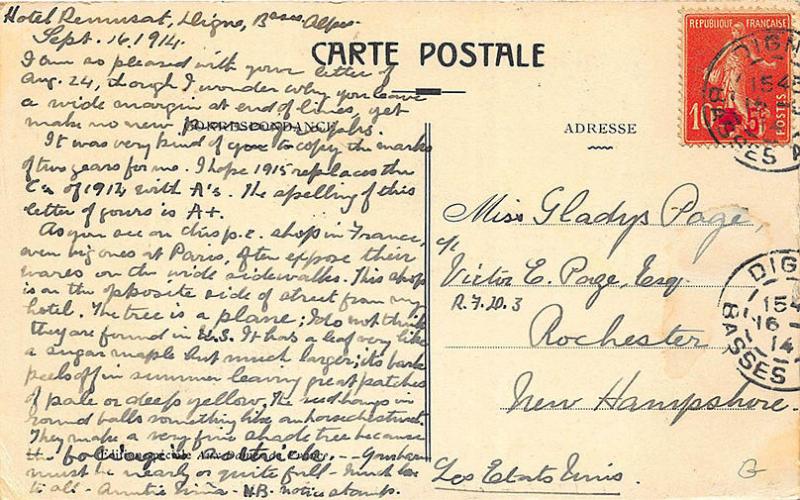 Hotel Remusat, Digne, Basses Alpes
Sept. 16, 1914.
I am so pleased with your letter of
Aug. 24, though I wonder why you leave
a wide margin at end of lines, yet
make no new paragraphs.
It was very kind of you to copy the marks
of two years for me. I hope 1915 replaces the
Cs of 1914 with A's. The spelling of this
letter of yours is A+.
As you see on this p.c. shops in France,
even big ones at Paris, often expose their
wares on the wide sidewalks. This shop
is on the opposite side of street from my
hotel. The tree is a plane; I do not think
they are found in U.S. It has a leaf very like
a sugar maple but much larger; its bark
peels off in summer leaving great patches
of pale or deep yellow. The seed hangs in
round balls something like an horsechestnut.
They make a very fine shade tree because
foliage is so thick.
must be nearly or quite full - Much love
to all - Auntie N.B. notice stamp.
CARTE POSTALE
CORRESPONDANCE
ADRESSE
Miss Gladys Page,
c/o
Victor E. Page, Esq.
R.F.D. 3
Rochester
New Hampshire.
Los Etats Unis.
RÉPUBLIQUE FRANÇAISE
10c
5c
POSTES
DIGNE
BASSES A
DIGN
154
16
14
BASSES